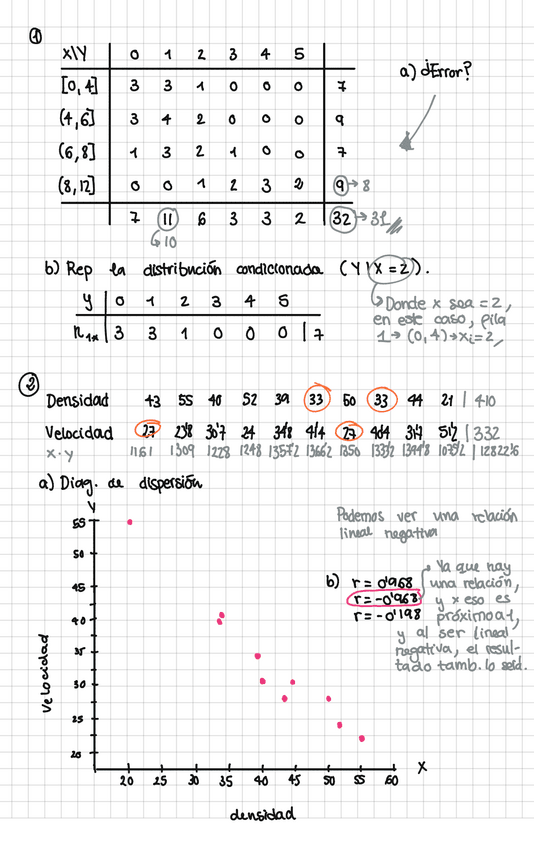 ①
X\Y 0 1 2 3 4 5
[0,4] 3 3 1 0 0 0 7
(4,6] 3 4 2 0 0 0 9
(6,8] 1 3 2 1 0 0 7
(8,12] 0 0 1 2 3 2 9 → 8
7 11 6 3 3 2 32 → 31
↳ 10
a) ¿Error?
b) Rep la distribución condicionada (Y|X=2).
Y 0 1 2 3 4 5
3 3 1 0 0 0 | 7
Donde x sea = 2,
en este caso, fila
1 → (0,4) → xi = 2,
②
Densidad 43 55 40 52 39 33 50 33 44 21 | 410
Velocidad 27 23'8 30'7 24 34'8 41'4 27 40'4 31'7 51'2 | 332
X·Y 1161 1309 1228 1248 1357'2 1366'2 1350 1333'2 1394'8 1075'2 | 12822'6
a) Diag. de dispersión
Podemos ver una relación
lineal negativa
Y
55
50
45
40
35
30
25
20
velocidad
20 25 30 35 40 45 50 55 60 X
densidad
b) r = 0'968
r = -0'968
r = -0'198
Ya que hay
una relación,
y x eso es
próximo a -1,
y al ser lineal
negativa, el resul-
tado tamb. lo será.